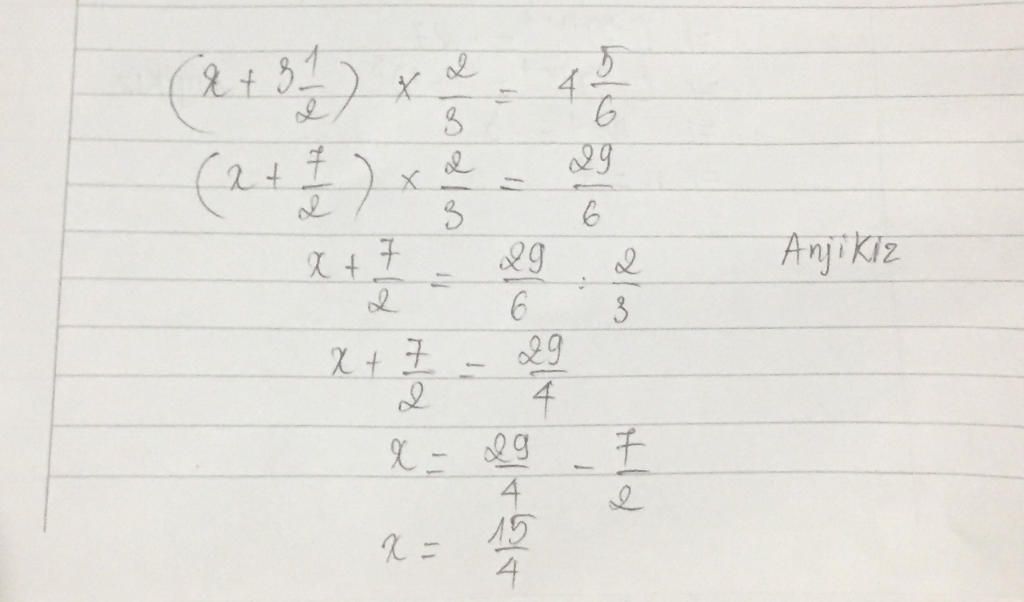 (x + 3 1/2) × 2/3 = 4 5/6
(x + 7/2) × 2/3 = 29/6
x + 7/2 = 29/6 : 2/3
AnjiKiz
x + 7/2 = 29/4
x = 29/4 - 7/2
x = 15/4